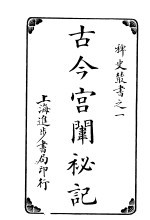 稗史叢書之一
古今宮闈祕記
上海進步書局印行